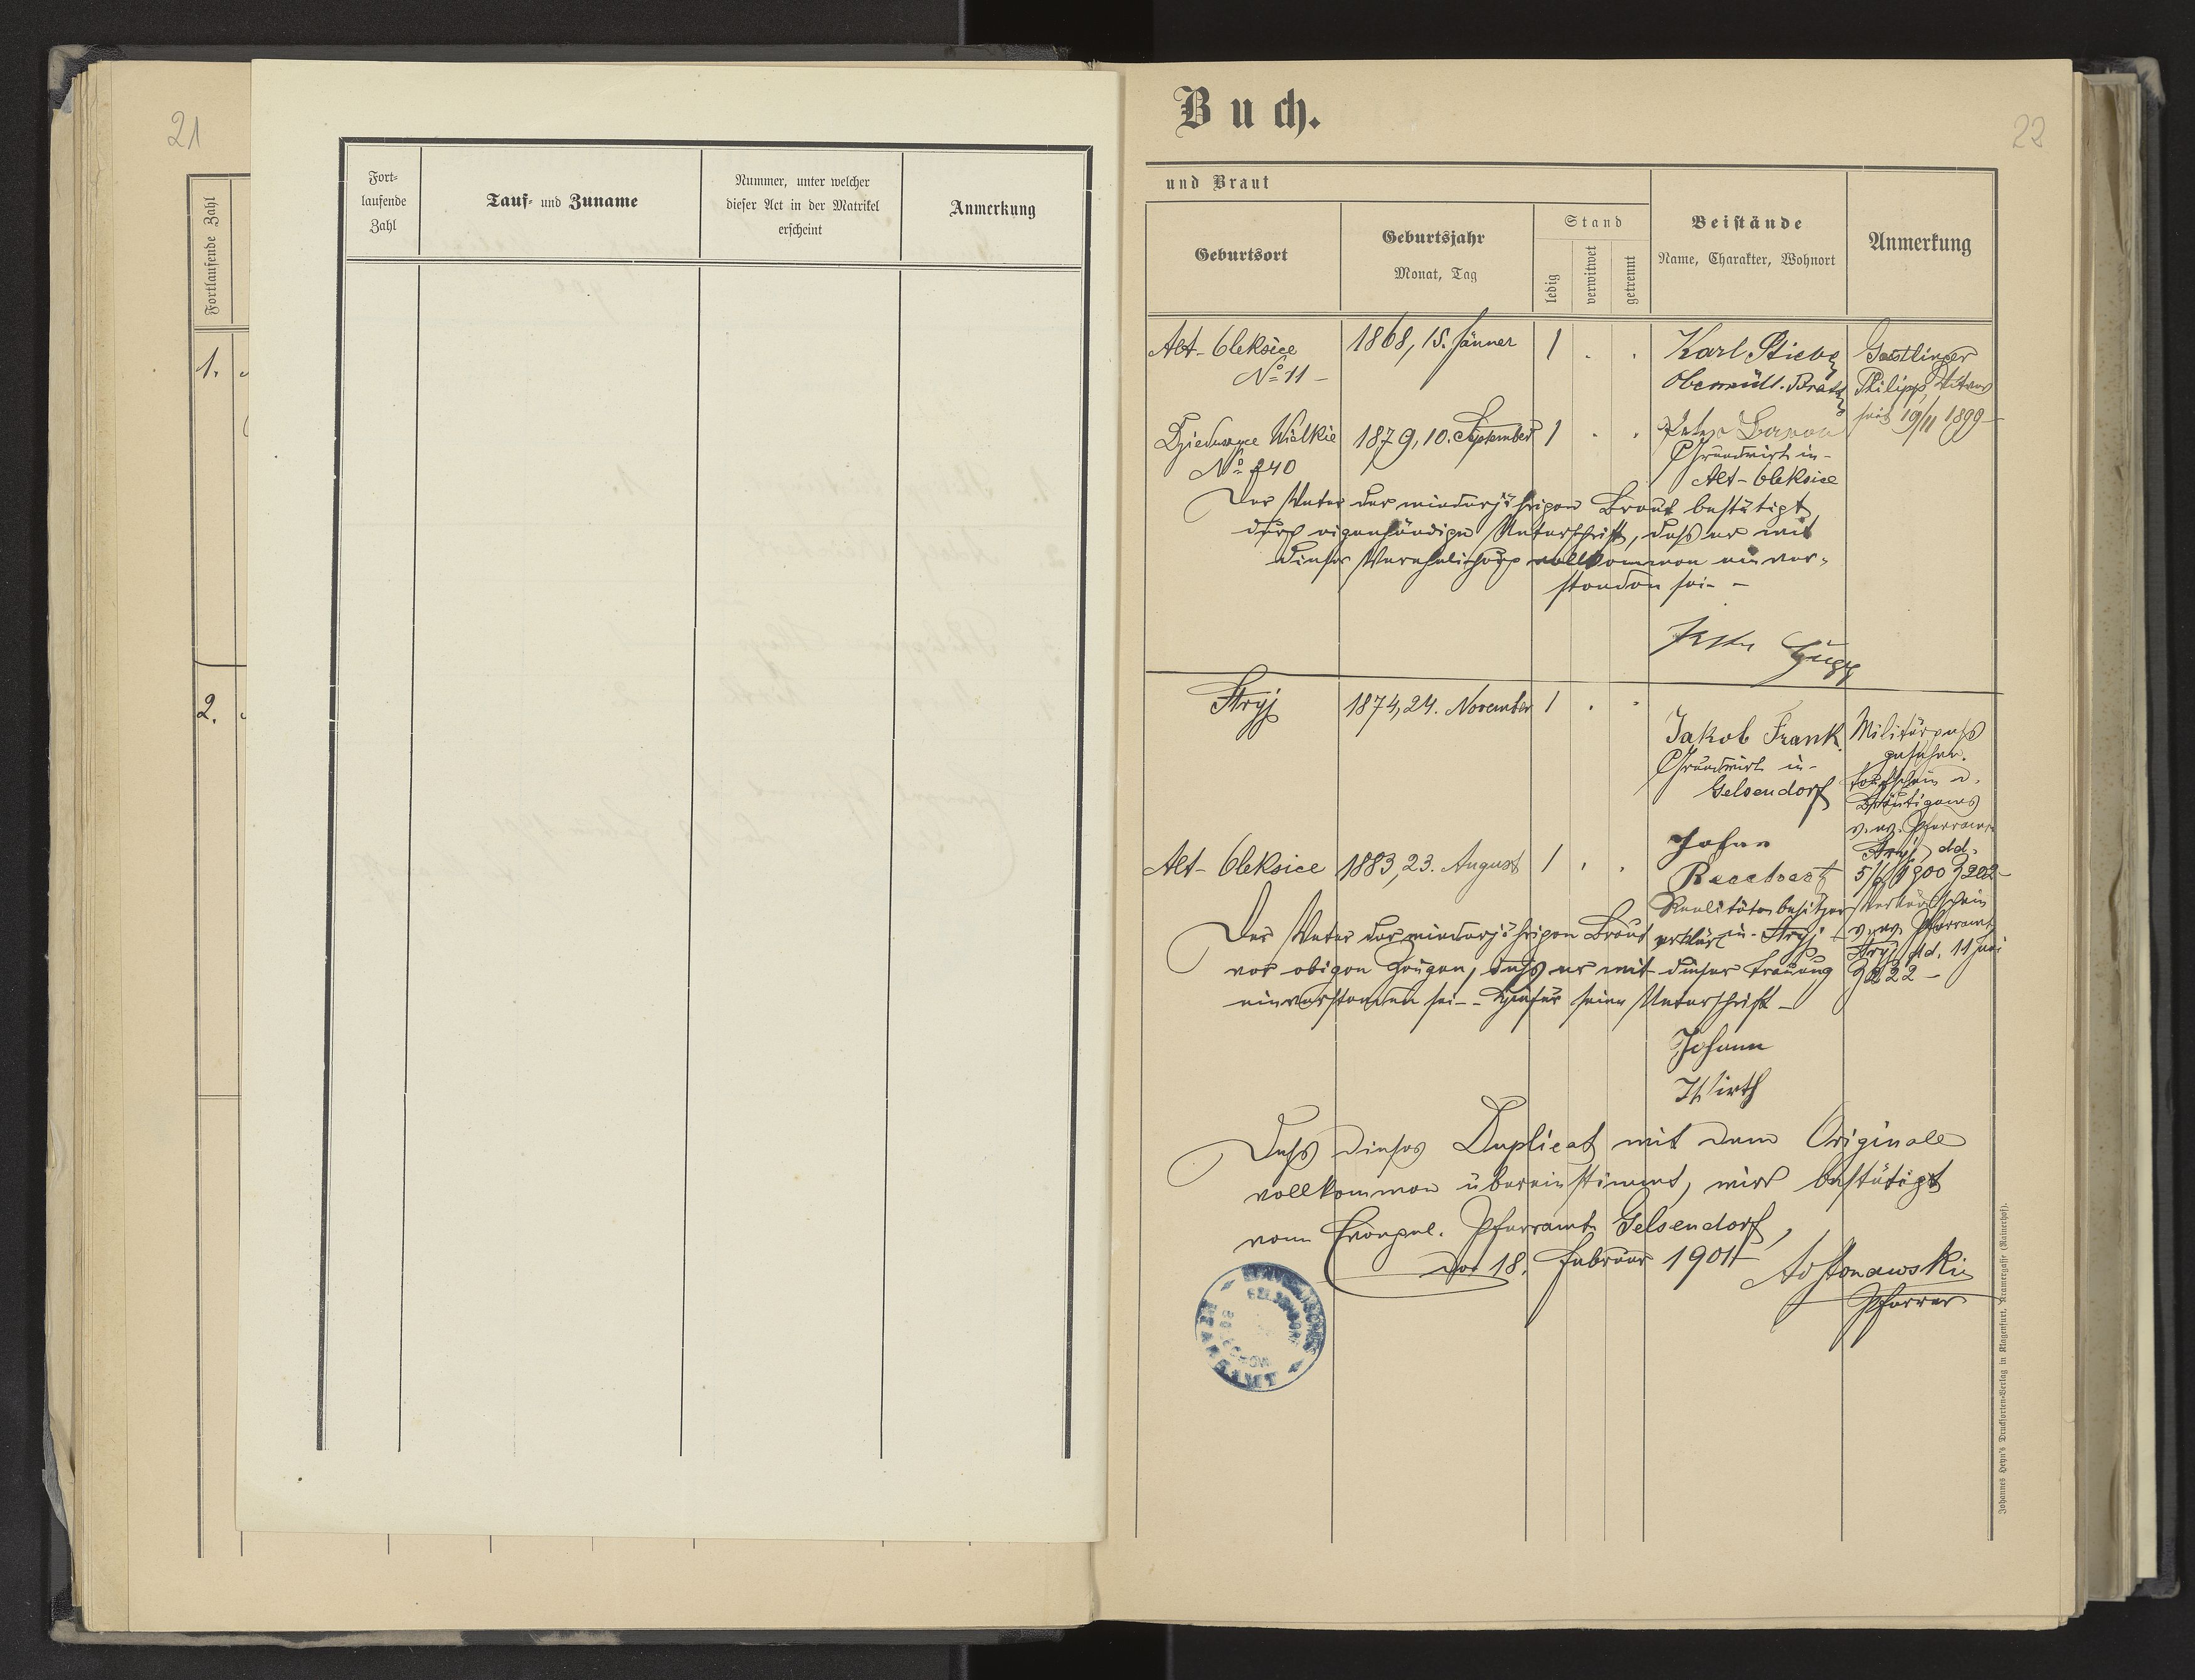 21
Fortlaufende Zahl
1.
2.
Fort-
laufende
Zahl
Tauf- und Zuname
Nummer, unter welcher
dieser Act in der Matrikel
erscheint
Anmerkung
Buch.
22
und Braut
Geburtsort
Geburtsjahr
Monat, Tag
Stand
ledig
verwitwet
getrennt
Beistände
Name, Charakter, Wohnort
Anmerkung
Alt-Oleksice
No 11 -
1868, 15. Jänner
1 . .
Karl
Philipp
seit 19/11 1899 -
Wielkie
No 240
1879, 10. September
1 . .
Grundwirt in -
Alt-Oleksice
Der Vater der minderjährigen Braut bestätigt
durch eigenhändige Unterschrift, daß er mit
dieser Verehelichung vollkommen einver-
standen sei - -
Stryj
1874, 24. November
1 . .
Jakob Frank
Grundwirt in -
Gelsendorf
Militärpass
gesehen.
Taufschein d.
Bräutigams
v. ev. Pfarramt
Stryj, dd.
1900 Z 202 -
Alt-Oleksice
1883, 23. August
1 . .
Johann
Realitätenbesitzer
in Stryj
v. ev. Pfarramt
Stryj dd. 11 Juni
Z 222 -
Der Vater der minderjährigen Braut erklärt
vor obigen Zeugen, daß er mit dieser Trauung
einverstanden sei - - Hiefür seine Unterschrift -
Johann
Wirth
Daß dieses Duplicat mit dem Originale
vollkommen übereinstimmt, wird bestätigt
vom Evangel. Pfarramte Gelsendorf,
den 18. Februar 1901
Pfarrer
Johannes Heyn's Drucksorten-Verlag in Klagenfurt, Kramergasse (Rainerhof).